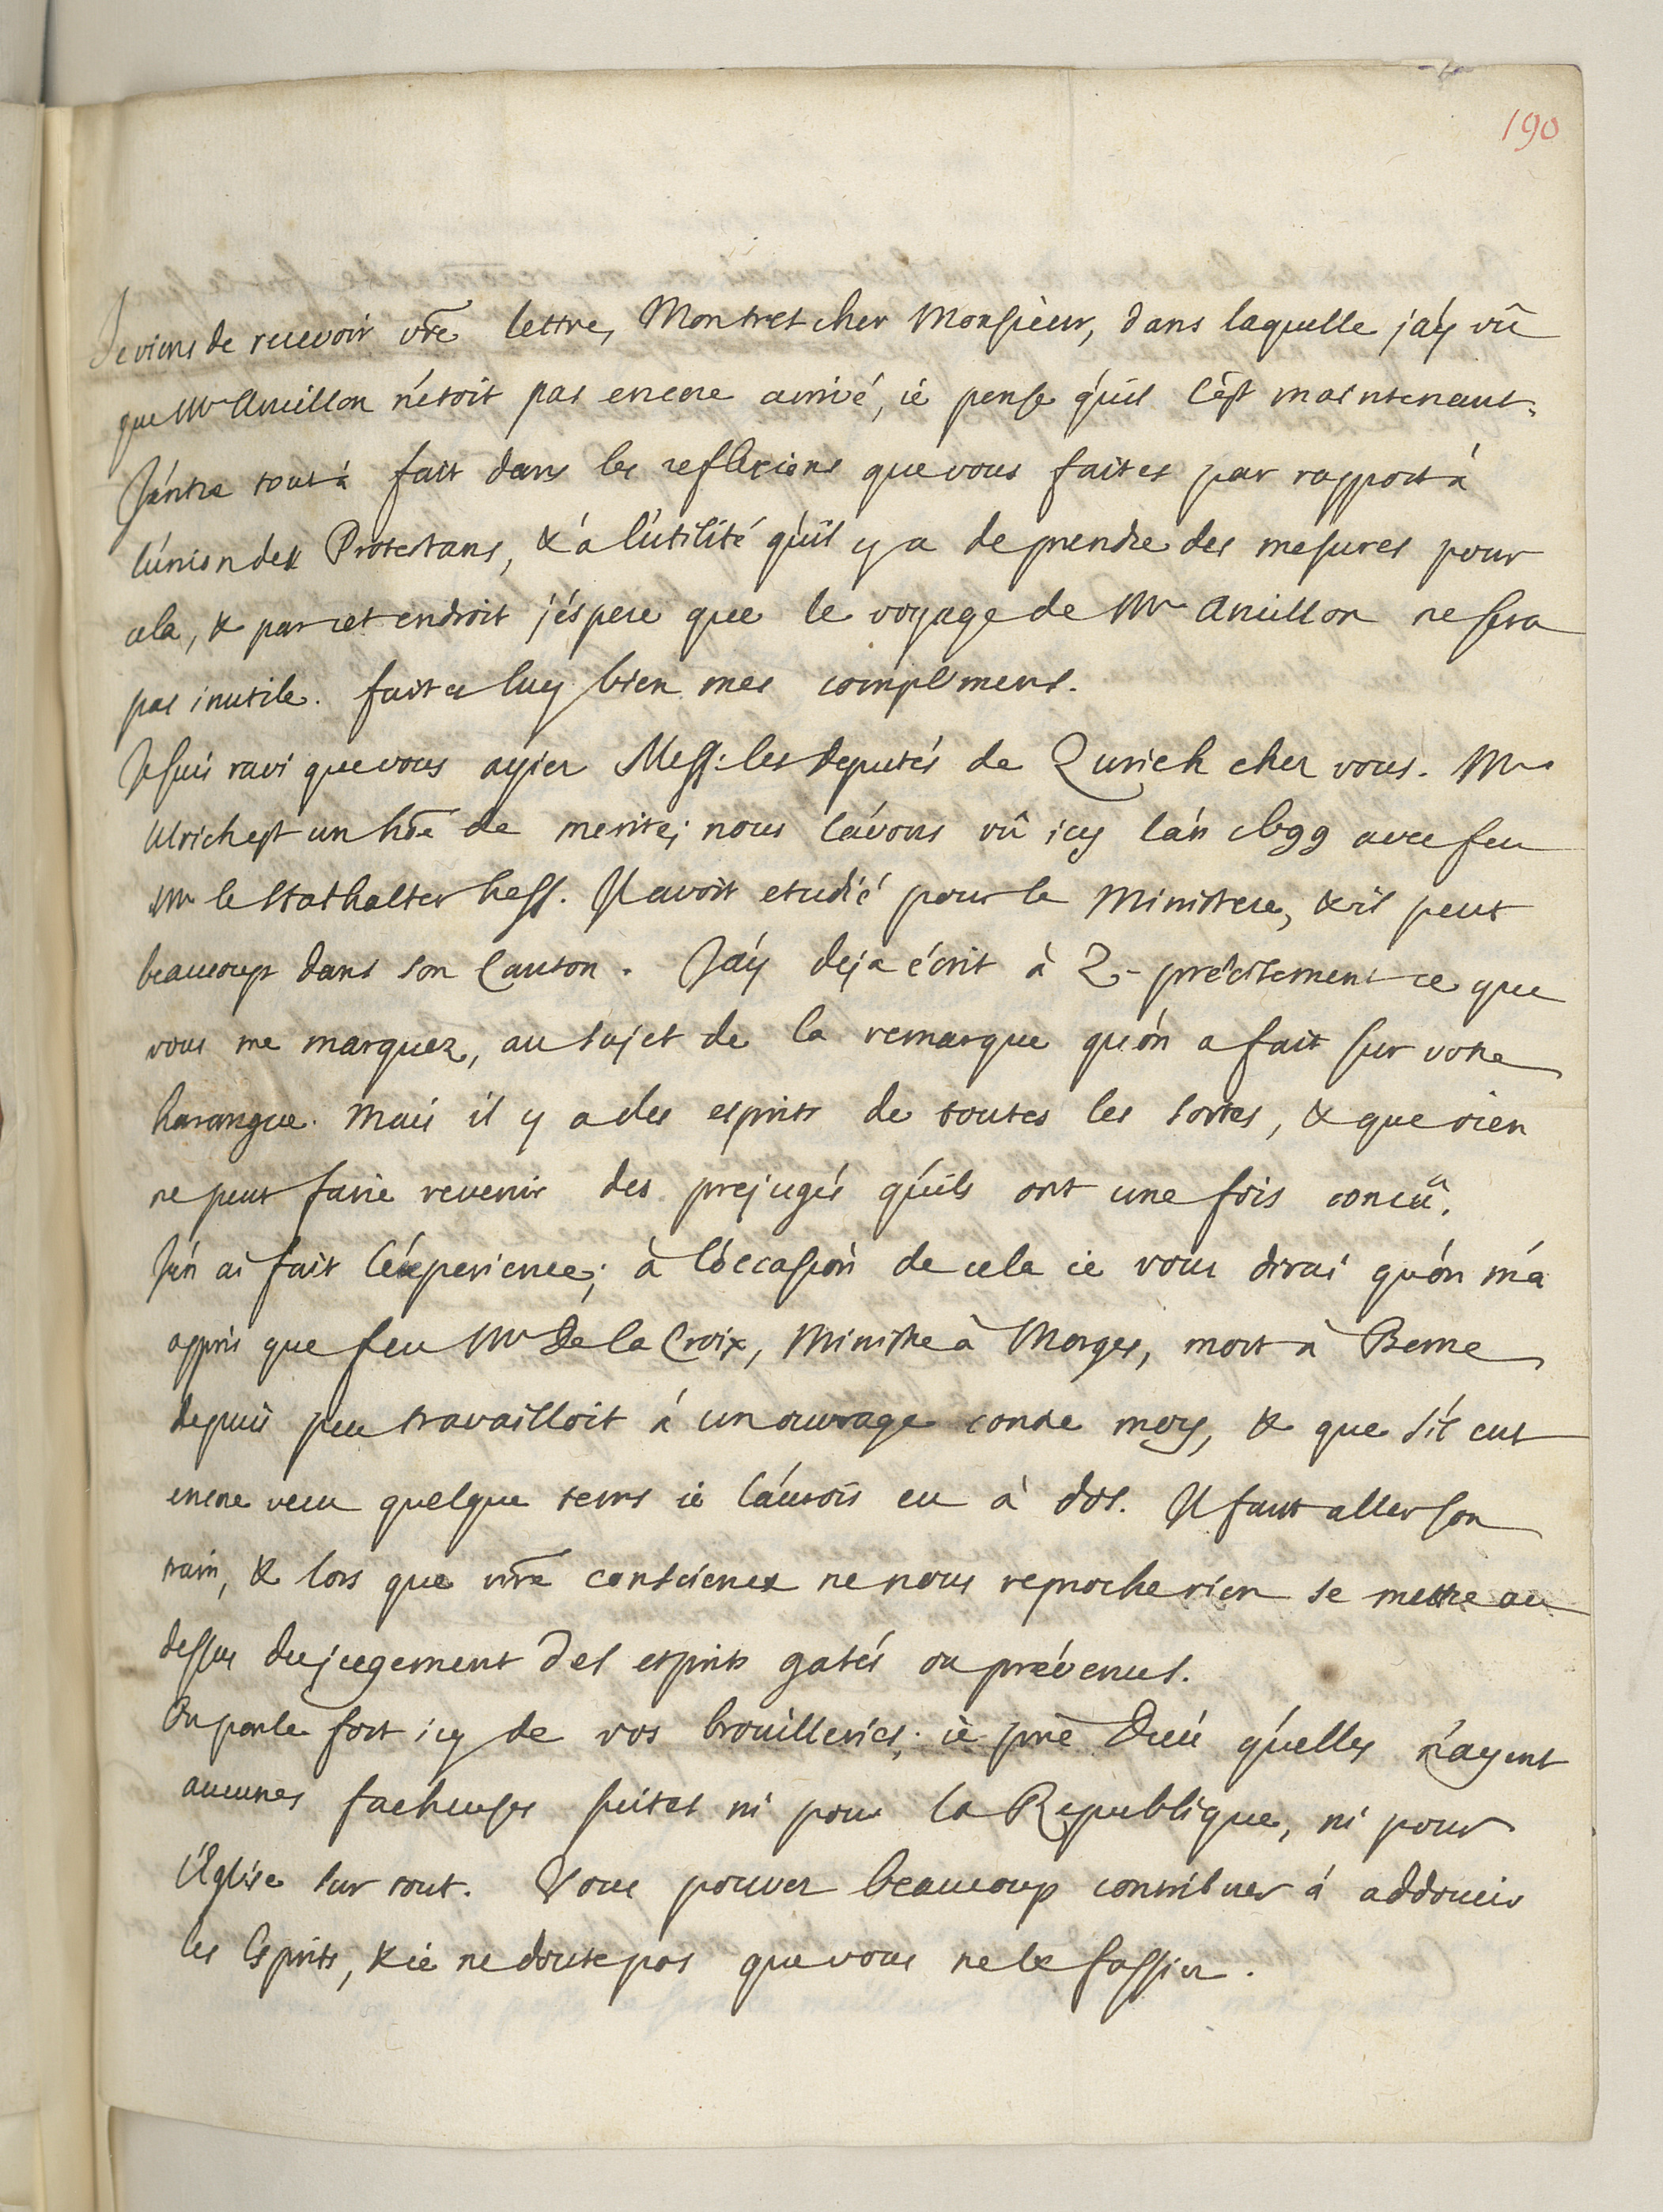 190
Je viens de recevoir vr̃e lettre, Mon tres cher Monsieur, dans laquelle j'ay vû
que Mr Ancillon n'étoit pas encore arrivé, ie pense qu'il l'est maintenant.
J'entre tout à fait dans les reflexions que vous faites par rapport à
l'union des Protestans, & à l'utilité qu'il y a de prendre des mesures pour
cela, & par cet endroit j'espere que le voyage de Mr Ancillon ne sera
pas inutile. faites luy bien mes complimens.
Je suis ravi que vous ayiez Mess: les deputés de Zurich chez vous. Mr
Ulrich est un hõe de merite; nous l'avons vû icy l'an 1699 avec feu
Mr le Stathalter hess. Il avoit etudié pour le Ministere, & il peut
beaucoup dans son Canton. J'ay deja écrit à Z- précisement ce que
vous me marquez, au sujet de la remarque qu'on a fait sur votre
harangue. Mais il y a des esprits de toutes les sortes, & que rien
ne peut faire revenir des prejugés qu'ils ont une fois concû.
J'en ai fait l'éxperience; à l'occasion de cela ie vous dirai qu'on m'a
appris que feu Mr De la Croix, Ministre à Morges, mort à Berne
depuis peu travailloit à un ouvrage contre moy, & que s'il eut
encore vecu quelque tems ie l'aurois eu à dos. Il faut aller son
train, & lors que nr̃e conscience ne nous reproche rien se mettre au
dessus du jugement des esprits gatés ou prévenus.
On parle fort icy de vos brouilleries; ie prie Dieu qu'elles n'ayent
aucunes facheuses suites ni pour la Republique, ni pour
l'Eglise sur tout. Vous pouvez beaucoup contribuer à addoucir
les Esprits, & ie ne doute pas que vous ne le fassiez.